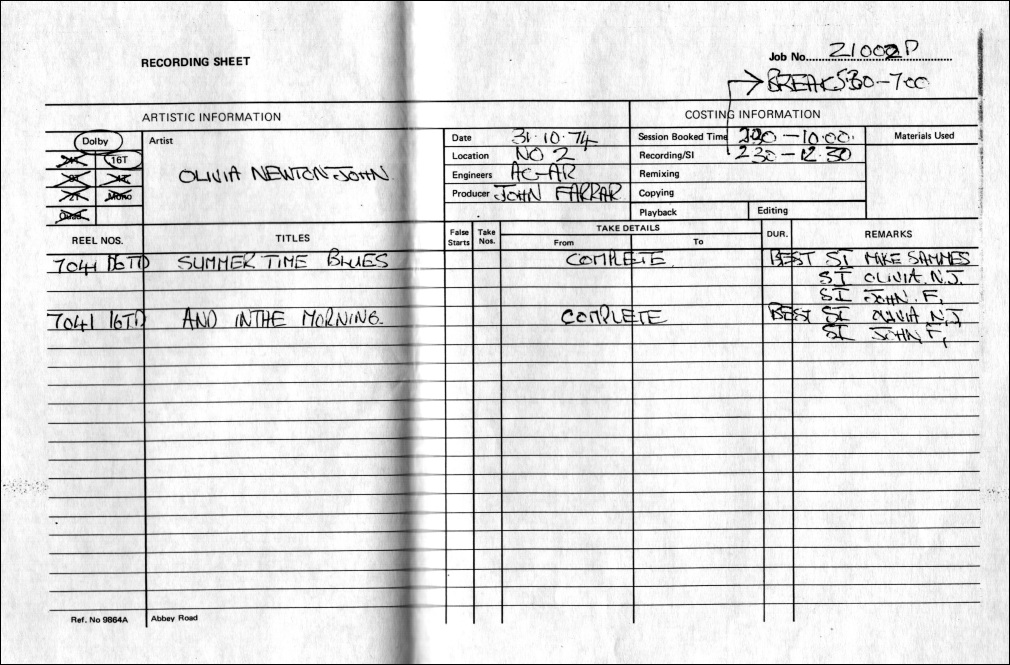 RECORDING SHEET
Job No. 21002P
BREAK 530-7.00
ARTISTIC INFORMATION
COSTING INFORMATION
Dolby
Artist
16T
2T Mono
Quad
OLIVIA NEWTON-JOHN.
Date 31.10.74
Location NO 2
Engineers AC-AR
Producer JOHN FARRAR
Session Booked Time 2.30 - 10.00.
Materials Used
Recording/SI 2.30 - 12.30
Remixing
Copying
Playback
Editing
REEL NOS.
TITLES
False Starts
Take Nos.
TAKE DETAILS
From
To
DUR.
REMARKS
7041 16TD SUMMER TIME BLUES COMPLETE BEST SI MIKE SAMMES
SI OLIVIA. N.J.
SI JOHN. F,
7041 16TD AND INTHE MORNING. COMPLETE BEST SI OLIVIA N.J
SI JOHN F,
Ref. No 9864A
Abbey Road